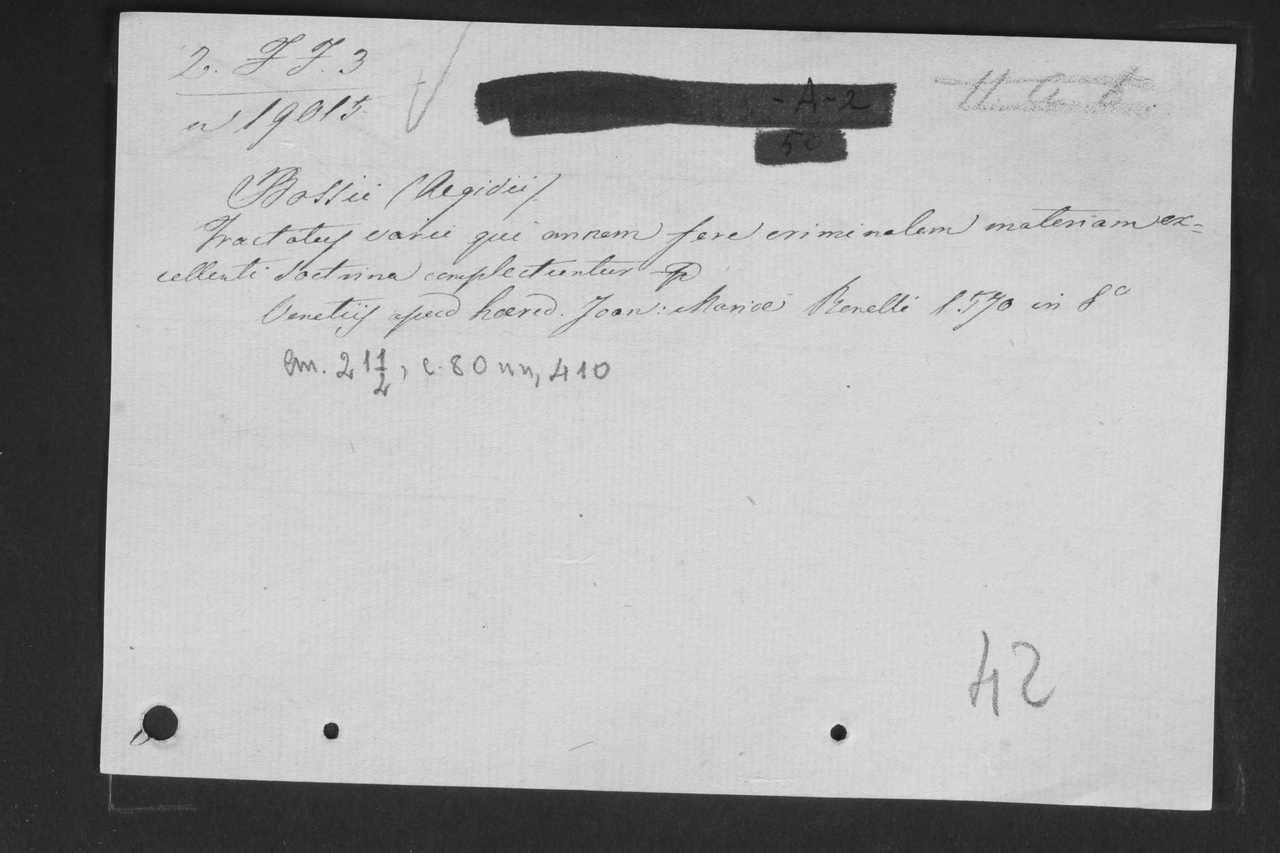 2. F F. 3
n 19015
-A-2
50
Bossii (Aegidii)
Tractatus varii qui omnem fere criminalem materiam ex=
cellenti doctrina complectuntur
Venetiis apud hœred. Joan: Mariœ Bonelli 1570 in 8º
cm. 21 1/2, c. 80 nn, 410
42